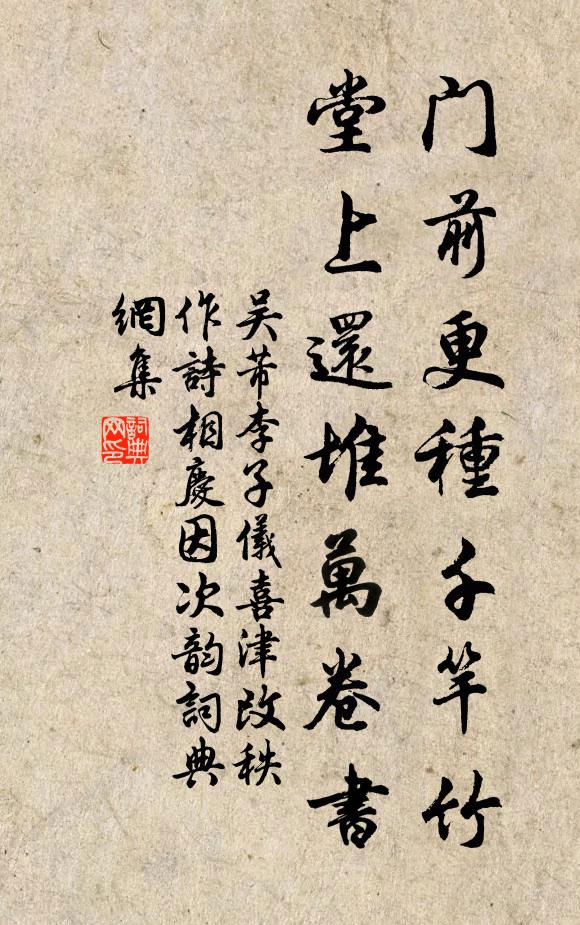 门前更種千竿竹
堂上還堆萬卷書
吴芾李子儀喜津改秩
作詩相慶因次韵詞典
網集
詞典
网印